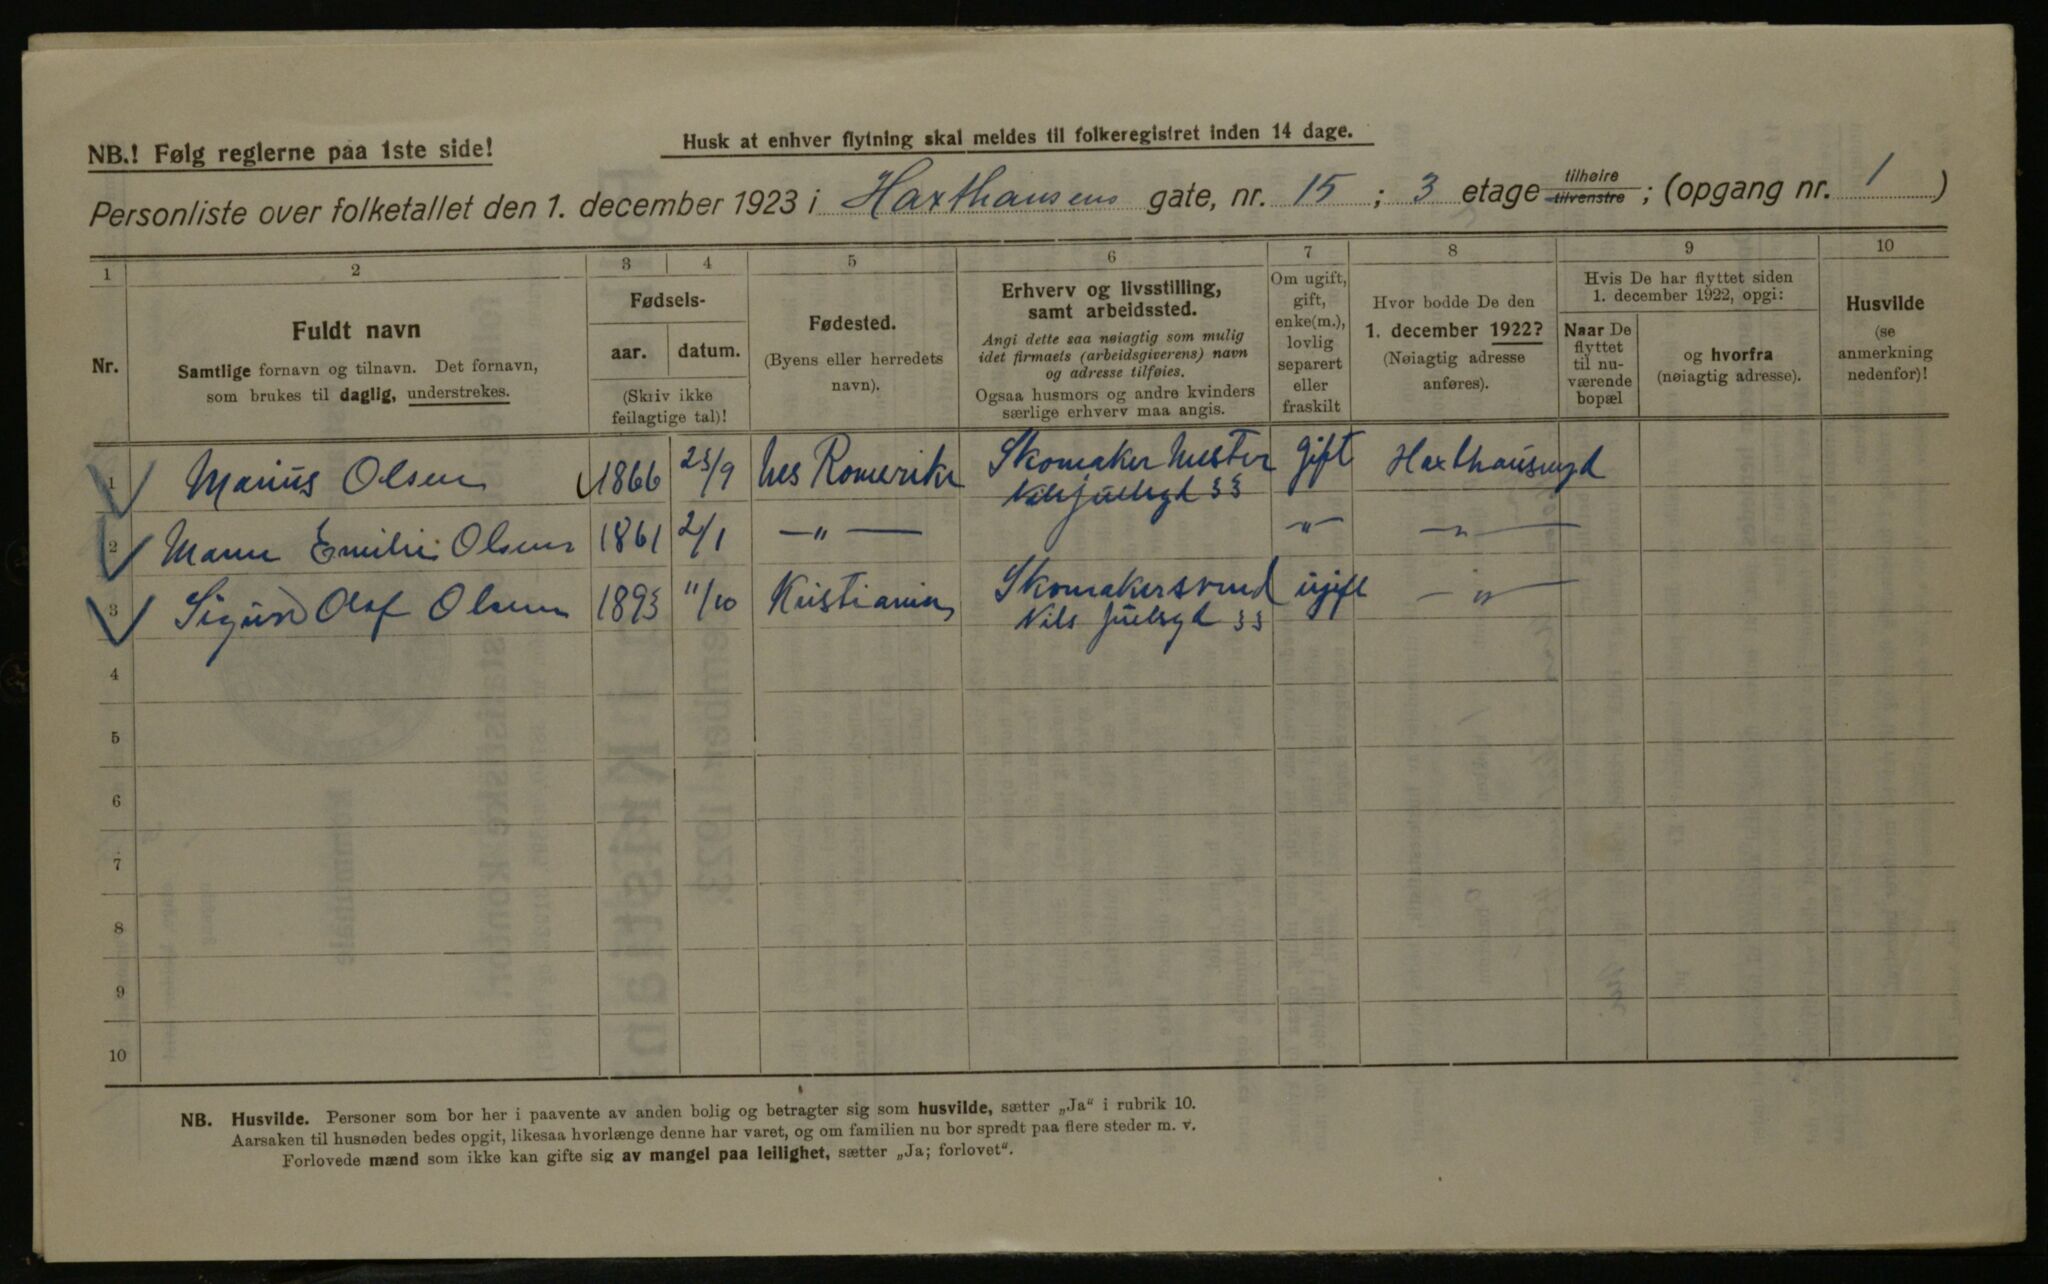 NB.! Følg reglerne paa 1ste side!
Husk at enhver flytning skal meldes til folkeregistret inden 14 dage.
Personliste over folketallet den 1. december 1923 i Haxthausens gate, nr. 15 ; 3 etage tilhøire tilvenstre ; (opgang nr. 1 )
1 2 3 4 5 6 7 8 9 10
Nr.
Fuldt navn
Samtlige fornavn og tilnavn. Det fornavn,
som brukes til daglig, understrekes.
Fødsels-
aar. datum.
(Skriv ikke
feilagtige tal)!
Fødested.
(Byens eller herredets
navn).
Erhverv og livsstilling,
samt arbeidssted.
Angi dette saa nøiagtig som mulig
idet firmaets (arbeidsgiverens) navn
og adresse tilføies.
Ogsaa husmors og andre kvinders
særlige erhverv maa angis.
Om ugift,
gift,
enke(m.),
lovlig
separert
eller
fraskilt
Hvor bodde De den
1. december 1922?
(Nøiagtig adresse
anføres).
Hvis De har flyttet siden
1. december 1922, opgi:
Naar De
flyttet
til nu-
værende
bopæl
og hvorfra
(nøiagtig adresse).
Husvilde
(se
anmerkning
nedenfor)!
1 Marius Olsen 1866 23/9 Nes Romerike Skomaker Mester gift Haxthausengd
Nils Juelsgd 53
2 Emilie Olsen 1861 2/1 —„— „ —„—
3 Sigurd Olaf Olsen 1893 11/10 Kristiania Skomakersvend ugift —„—
Nils Juelsgd 53
4
5
6
7
8
9
10
NB. Husvilde. Personer som bor her i paavente av anden bolig og betragter sig som husvilde, sætter „Ja“ i rubrik 10.
Aarsaken til husnøden bedes opgit, likesaa hvorlænge denne har varet, og om familien nu bor spredt paa flere steder m. v.
Forlovede mænd som ikke kan gifte sig av mangel paa leilighet, sætter „Ja; forlovet“.